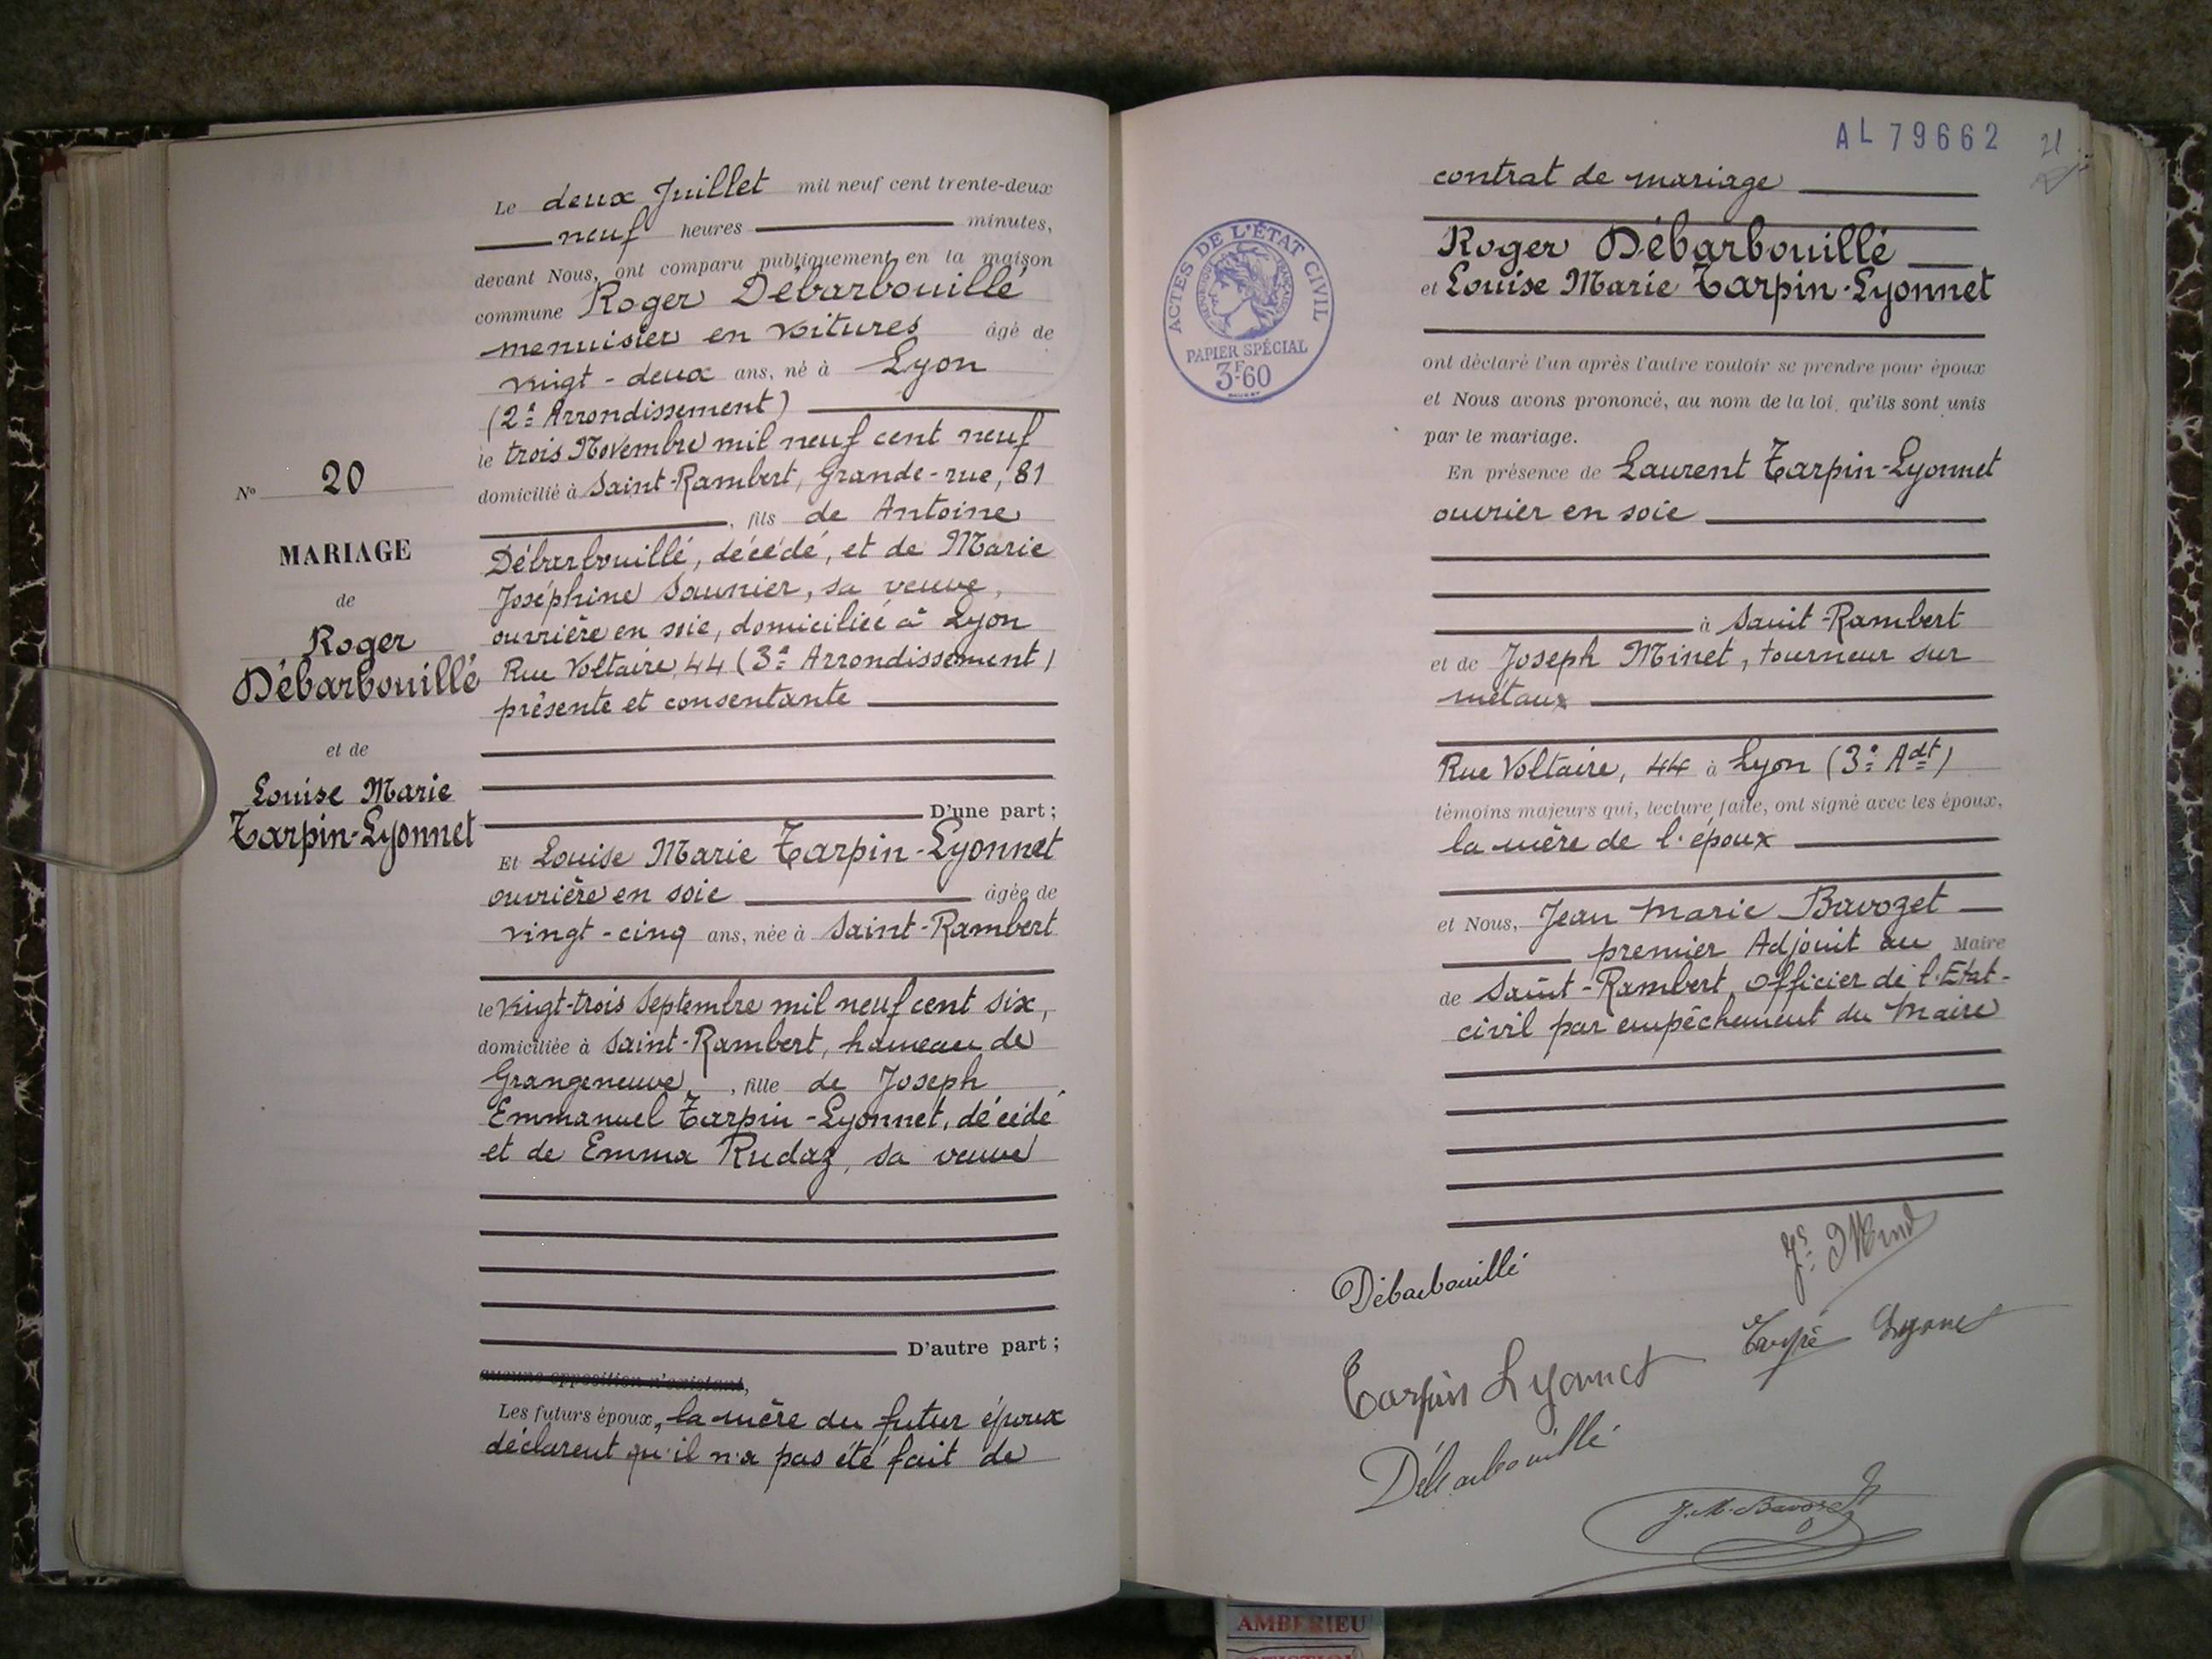 Le deux Juillet mil neuf cent trente-deux
neuf heures minutes,
devant Nous, ont comparu publiquement en la maison
commune Roger Débarbouillé
menuisier en voitures âgé de
vingt-deux ans, né à Lyon
(2e Arrondissement)
le trois Novembre mil neuf cent neuf
domicilié à Saint-Rambert, Grande-rue, 81
, fils de Antoine
Débarbouillé, décédé, et de Marie
Joséphine Saunier, sa veuve,
ouvrière en soie, domiciliée à Lyon
Rue Voltaire, 44 (3e Arrondissement)
présente et consentante
D'une part;
Et Louise Marie Tarpin-Lyonnet
ouvrière en soie âgée de
vingt-cinq ans, née à Saint-Rambert
le vingt-trois Septembre mil neuf cent six,
domiciliée à Saint-Rambert, hameau de
Grangeneuve, , fille de Joseph
Emmanuel Tarpin-Lyonnet, décédé
et de Emma Rudaz, sa veuve
D'autre part;
aucune opposition n'existant,
Les futurs époux, la mère du futur époux
déclarent qu'il n'a pas été fait de
No 20
MARIAGE
de
Roger
Débarbouillé
et de
Louise Marie
Tarpin-Lyonnet
AL 79662
21
contrat de mariage
Roger Débarbouillé
et Louise Marie Tarpin-Lyonnet
ont déclaré l'un après l'autre vouloir se prendre pour époux
et Nous avons prononcé, au nom de la loi, qu'ils sont unis
par le mariage.
En présence de Laurent Tarpin-Lyonnet
ouvrier en soie
à Saint-Rambert
et de Joseph Minet, tourneur sur
métaux
Rue Voltaire, 44 à Lyon (3e Adt)
témoins majeurs qui, lecture faite, ont signé avec les époux,
la mère de l'époux
et Nous, Jean Marie Bavozet
premier Adjoint au Maire
de Saint-Rambert, Officier de l'Etat-
civil par empêchement du Maire
Débarbouillé
Jh Minet
Tarpin Lyonnet
Tarpin Lyonnet
Débarbouillé
J. M. Bavozet
ACTES DE L'ÉTAT CIVIL
RÉPUBLIQUE FRANÇAISE
PAPIER SPÉCIAL
3F60
AMBERIEU